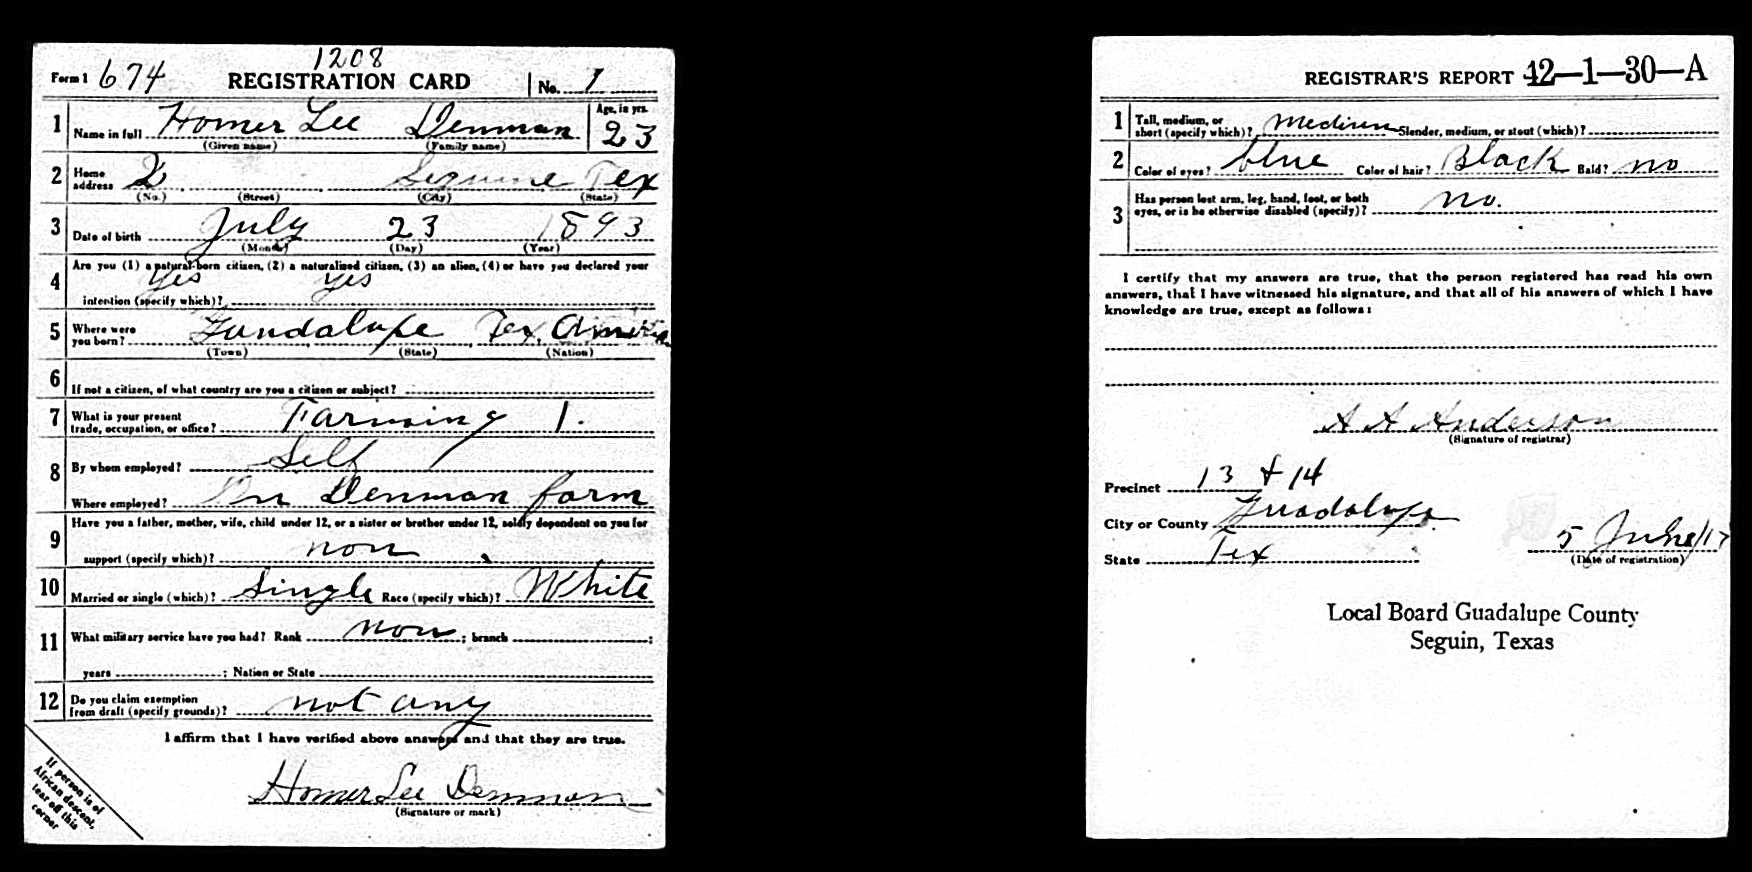 1208
Form 1 674 REGISTRATION CARD No. 1
1 Name in full Homer Lee Denman Age, in yrs. 23
(Given name) (Family name)
2 Home address 2 Seguine Tex
(No.) (Street) (City) (State)
3 Date of birth July 23 1893
(Month) (Day) (Year)
4 Are you (1) a natural-born citizen, (2) a naturalized citizen, (3) an alien, (4) or have you declared your
yes yes
intention (specify which)?
5 Where were you born? Guadalupe Tex. America
(Town) (State) (Nation)
6 If not a citizen, of what country are you a citizen or subject?
7 What is your present trade, occupation, or office? Farming 1.
8 By whom employed? Self
Where employed? On Denman farm
9 Have you a father, mother, wife, child under 12, or a sister or brother under 12, solely dependent on you for
support (specify which)? non
10 Married or single (which)? Single Race (specify which)? White
11 What military service have you had? Rank non ; branch ;
years ; Nation or State
12 Do you claim exemption from draft (specify grounds)? not any
I affirm that I have verified above answers and that they are true.
Homer Lee Denman
(Signature or mark)
If person is of
African descent,
tear off this
corner
REGISTRAR'S REPORT 42—1—30—A
1 Tall, medium, or short (specify which)? medium Slender, medium, or stout (which)?
2 Color of eyes? blue Color of hair? Black Bald? no
3 Has person lost arm, leg, hand, foot, or both
eyes, or is he otherwise disabled (specify)? no.
I certify that my answers are true, that the person registered has read his own
answers, that I have witnessed his signature, and that all of his answers of which I have
knowledge are true, except as follows:
A A Anderson
(Signature of registrar)
Precinct 13 & 14
City or County Guadalupe
State Tex 5 June/17
(Date of registration)
Local Board Guadalupe County
Seguin, Texas